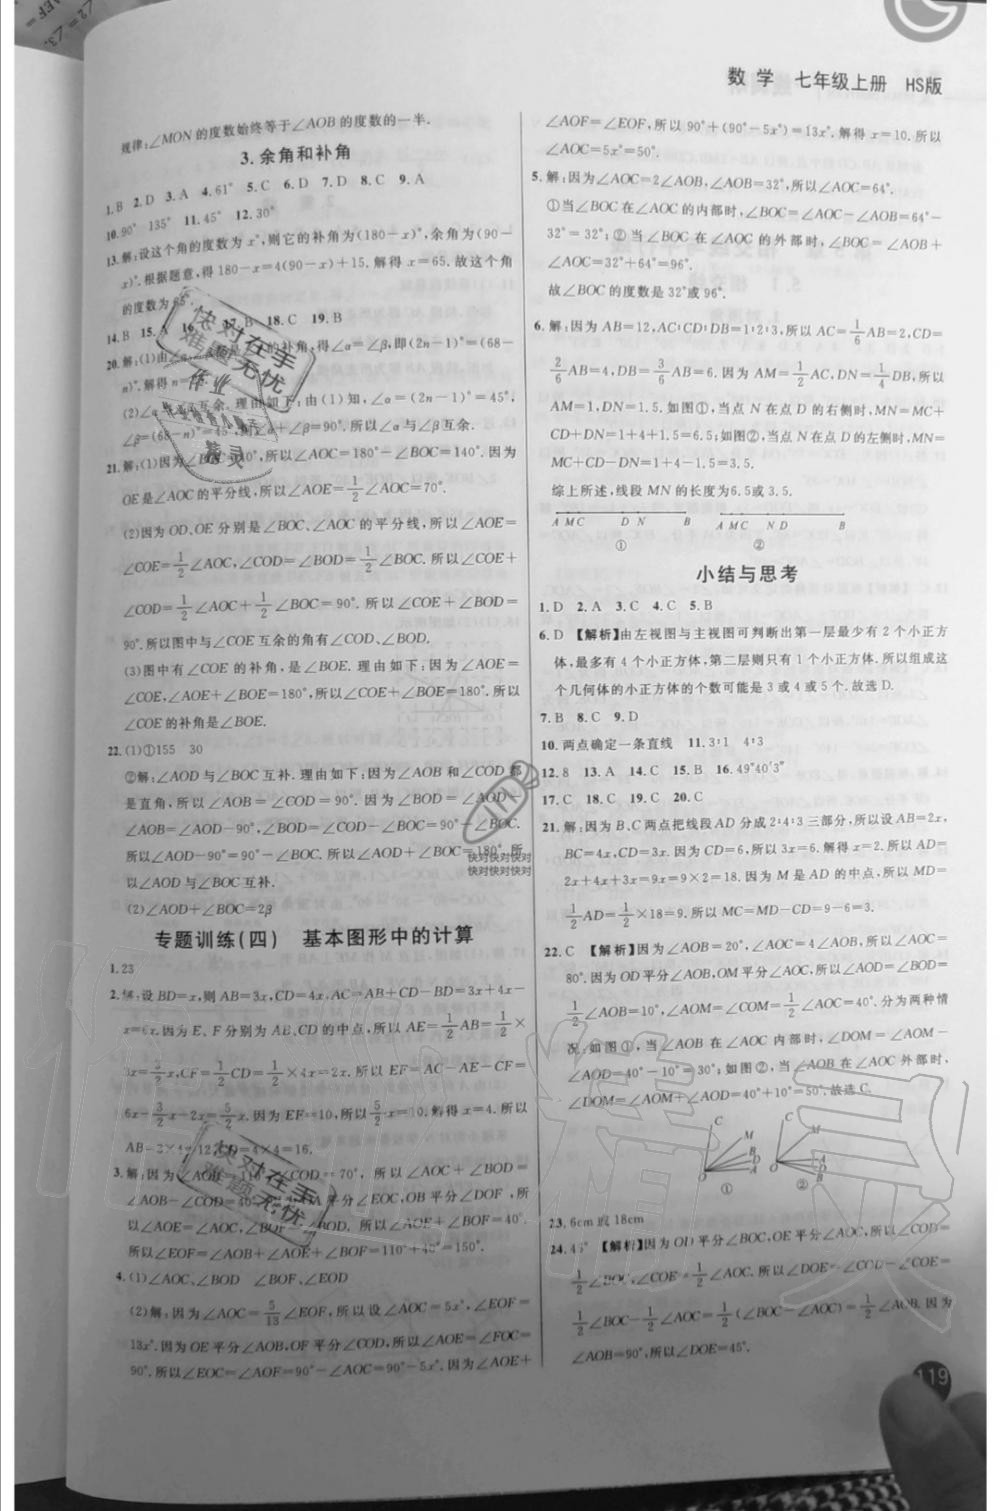 数学 七年级上册 HS版
规律:∠MON的度数始终等于∠AOB的度数的一半.
3.余角和补角
1.B 2.D 3.A 4.61° 5.C 6.D 7.D 8.C 9.A
10.90° 135° 11.45° 12.30°
13.解:设这个角的度数为x°,则它的补角为(180-x)°,余角为(90-
x)°.根据题意,得180-x=4(90-x)+15.解得x=65.故这个角
的度数为65°.
14.B 15.A 16. 17.B 18.C 19.B
20.解:(1)由∠α 的补角,得∠α=∠β,即(2n-1)°=(68-
n)°.解得n=
(2)∠α 互余.理由如下:由(1)知,∠α=(2n-1)°=45°,
∠β=(68-n)°=45°, ∠α+∠β=90°.所以∠α与∠β互余.
21.解:(1)因为∠BOC=40°,所以∠AOC=180°-∠BOC=140°.因为
OE是∠AOC的平分线,所以∠AOE=1/2∠AOC=70°.
(2)因为OD、OE分别是∠BOC、∠AOC的平分线,所以∠AOE=
∠COE=1/2∠AOC,∠COD=∠BOD=1/2∠BOC.所以∠COE+
∠COD=1/2∠AOC+1/2∠BOC=90°.所以∠COE+∠BOD=
90°.所以图中与∠COE互余的角有∠COD、∠BOD.
(3)图中有∠COE的补角,是∠BOE.理由如下:因为∠AOE=
∠COE,∠AOE+∠BOE=180°,所以∠COE+∠BOE=180°.所以
∠COE的补角是∠BOE.
22.(1)①155 30
②解:∠AOD与∠BOC互补.理由如下:因为∠AOB和∠COD都
是直角,所以∠AOB=∠COD=90°.因为∠BOD=∠AOD-
∠AOB=∠AOD-90°,∠BOD=∠COD-∠BOC=90°-∠BOC.
所以∠AOD-90°=90°-∠BOC.所以∠AOD+∠BOC=180°.所
以∠AOD与∠BOC互补.
(2)∠AOD+∠BOC=2β
专题训练(四) 基本图形中的计算
1.23
2.解:设BD=x,则AB=3x,CD=4x,AC=AB+CD-BD=3x+4x-
x=6x.因为E、F分别为AB、CD的中点,所以AE=1/2AB=1/2×
3x=3/2x,CF=1/2CD=1/2×4x=2x.所以EF=AC-AE-CF=
6x-3/2x-2x=5/2x.因为EF=10,所以5/2x=10.解得x=4.所以
AB=3×4=12,CD=4×4=16.
3.解:因为∠AOB=110°,∠COD=70°,所以∠AOC+∠BOD=
∠AOB-∠COD=40°. OA平分∠EOC,OB平分∠DOF,所
以∠AOE=∠AOC,∠BOF=∠BOD.所以∠AOE+∠BOF=40°.
所以∠EOF=∠AOB+∠AOE+∠BOF=110°+40°=150°.
4.(1)∠AOC、∠BOD ∠BOF、∠EOD
(2)解:因为∠AOC=5/13∠EOF,所以设∠AOC=5x°,∠EOF=
13x°.因为OE平分∠AOB,OF平分∠COD,所以∠AOE=∠FOC=
90°.所以∠EOC=∠AOF=90°-∠AOC=90°-5x°.因为∠AOE+
∠AOF=∠EOF,所以90°+(90°-5x°)=13x°.解得x=10.所以
∠AOC=5x°=50°.
5.解:因为∠AOC=2∠AOB,∠AOB=32°,所以∠AOC=64°.
①当∠BOC在∠AOC的内部时,∠BOC=∠AOC-∠AOB=64°-
32°=32°;②当∠BOC在∠AOC的外部时,∠BOC=∠AOB+
∠AOC=32°+64°=96°.
故∠BOC的度数是32°或96°.
6.解:因为AB=12,AC∶CD∶DB=1∶2∶3,所以AC=1/6AB=2,CD=
2/6AB=4,DB=3/6AB=6.因为AM=1/2AC,DN=1/4DB,所以
AM=1,DN=1.5.如图①,当点N在点D的右侧时,MN=MC+
CD+DN=1+4+1.5=6.5;如图②,当点N在点D的左侧时,MN=
MC+CD-DN=1+4-1.5=3.5.
综上所述,线段MN的长度为6.5或3.5.
A M C D N B A M C N D B
① ②
小结与思考
1.D 2.A 3.C 4.C 5.B
6.D 【解析】由左视图与主视图可判断出第一层最少有2个小正方
体,最多有4个小正方体,第二层则只有1个小正方体.所以组成这
个几何体的小正方体的个数可能是3或4或5个.故选D.
7.B 8.C 9.D
10.两点确定一条直线 11.3∶1 4∶3
12.8 13.A 14.C 15.B 16.49°40′3″
17.C 18.C 19.C 20.C
21.解:因为B、C两点把线段AD分成2∶4∶3三部分,所以设AB=2x,
BC=4x,CD=3x.因为CD=6,所以3x=6.解得x=2.所以AD=
2x+4x+3x=9x=9×2=18.因为M是AD的中点,所以MD=
1/2AD=1/2×18=9.所以MC=MD-CD=9-6=3.
22.C 【解析】因为∠AOB=20°,∠AOC=4∠AOB,所以∠AOC=
80°.因为OD平分∠AOB,OM平分∠AOC,所以∠AOD=∠BOD=
1/2∠AOB=10°,∠AOM=∠COM=1/2∠AOC=40°.分为两种情
况:如图①,当∠AOB在∠AOC内部时,∠DOM=∠AOM-
∠AOD=40°-10°=30°;如图②,当∠AOB在∠AOC外部时,
∠DOM=∠AOM+∠AOD=40°+10°=50°.故选C.
C M B D A O C M A D B O
① ②
23.6cm或18cm
24.45° 【解析】因为OD平分∠BOC,OE平分∠AOC,所以∠COD=
1/2∠BOC,∠COE=1/2∠AOC.所以∠DOE=∠COD-∠COE=
1/2∠BOC-1/2∠AOC=1/2(∠BOC-∠AOC)=1/2∠AOB.因为
∠AOB=90°,所以∠DOE=45°.
119
快对在手
难题无忧
作业
快对快对快对
快对快对快对
快对在手
难题无忧